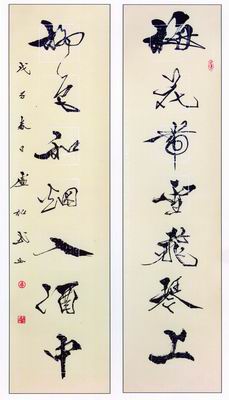 梅花帶雪飛琴上
柳色和烟入酒中
戊子春日盧松